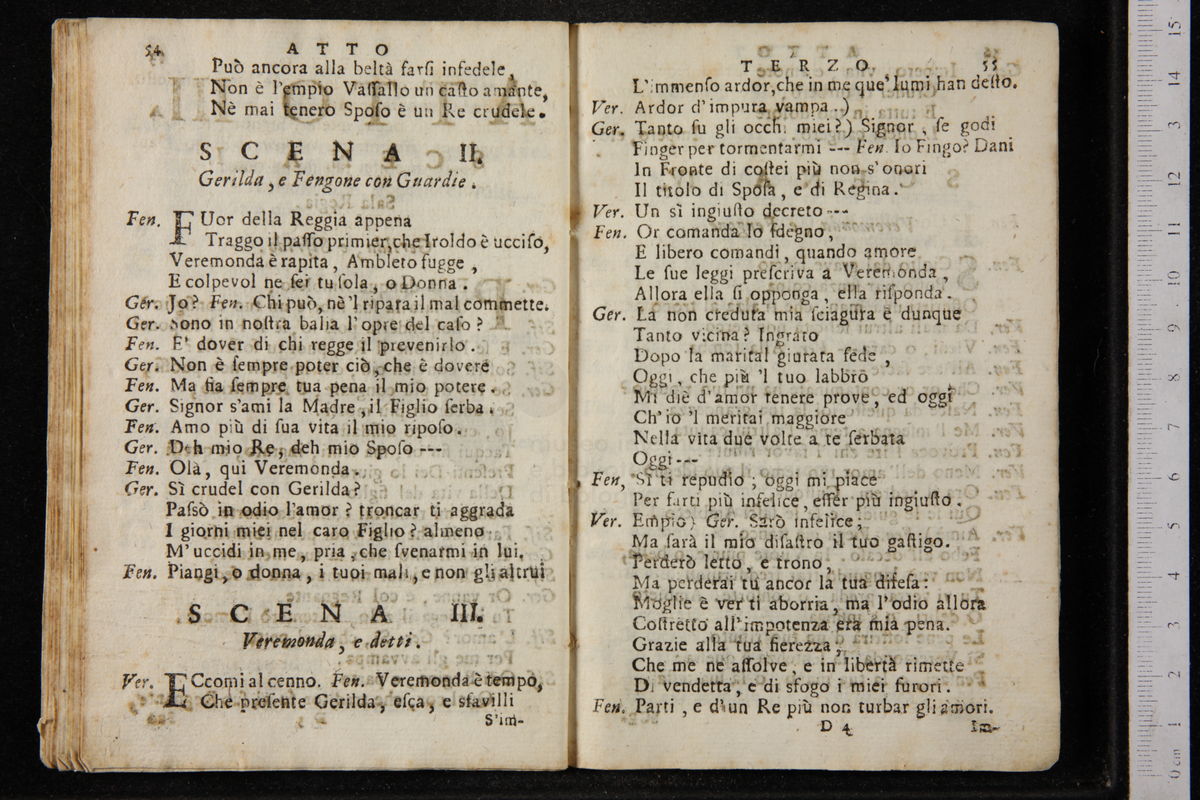 54 ATTO
Può ancora alla beltà farſi infedele,
Non è l'empio Vaſſallo un caſto amante,
Nè mai tenero Spoſo è un Re crudele.
SCENA II.
Gerilda, e Fengone con Guardie.
Fen. FUor della Reggia appena
Traggo il paſſo primier, che Iroldo è ucciſo,
Veremonda è rapita, Ambleto fugge,
E colpevol ne ſei tu ſola, o Donna.
Ger. Jo? Fen. Chi può, nè 'l ripara il mal commette.
Ger. Sono in noſtra balia l'opre del caſo?
Fen. E' dover di chi regge il prevenirlo.
Ger. Non è ſempre poter ciò, che è dovere
Fen. Ma ſia ſempre tua pena il mio potere.
Ger. Signor s'ami la Madre, il Figlio ſerba.
Fen. Amo più di ſua vita il mio ripoſo.
Ger. Deh mio Re, deh mio Spoſo ---
Fen. Olà, qui Veremonda.
Ger. Sì crudel con Gerilda?
Paſsò in odio l'amor? troncar ti aggrada
I giorni miei nel caro Figlio? almeno
M'uccidi in me, pria, che ſvenarmi in lui.
Fen. Piangi, o donna, i tuoi mali, e non gli altrui
SCENA III.
Veremonda, e detti.
Ver. ECcomi al cenno. Fen. Veremonda è tempo,
Che preſente Gerilda, eſca, e sfavilli
S'im-
TERZO. 55
L'immenſo ardor, che in me que' lumi han deſto.
Ver. Ardor d'impura vampa.)
Ger. Tanto ſu gli occhi miei?) Signor, ſe godi
Finger per tormentarmi --- Fen. Io Fingo? Dani
In Fronte di coſtei più non s'onori
Il titolo di Spoſa, e di Regina.
Ver. Un sì ingiuſto decreto ---
Fen. Or comanda lo ſdegno,
E libero comandi, quando amore
Le ſue leggi preſcriva a Veremonda,
Allora ella ſi opponga, ella riſponda.
Ger. La non creduta mia ſciagura è dunque
Tanto vicina? Ingrato
Dopo la marital giurata fede,
Oggi, che più 'l tuo labbro
Mi diè d'amor tenere prove, ed oggi
Ch'io 'l meritai maggiore
Nella vita due volte a te ſerbata
Oggi ---
Fen, Sì ti repudio; oggi mi piace
Per farti più infelice, eſſer più ingiuſto.
Ver. Empio) Ger. Sarò infelice;
Ma ſarà il mio diſaſtro il tuo gaſtigo.
Perderò letto, e trono,
Ma perderai tu ancor la tua difeſa:
Moglie è ver ti aborria, ma l'odio allora
Coſtretto all'impotenza era mia pena.
Grazie alla tua fierezza,
Che me ne aſſolve, e in libertà rimette
Di vendetta, e di sfogo i miei furori.
Fen. Parti, e d'un Re più non turbar gli amori.
D 4 Im-
0 cm 1 2 3 4 5 6 7 8 9 10 11 12 13 14 15